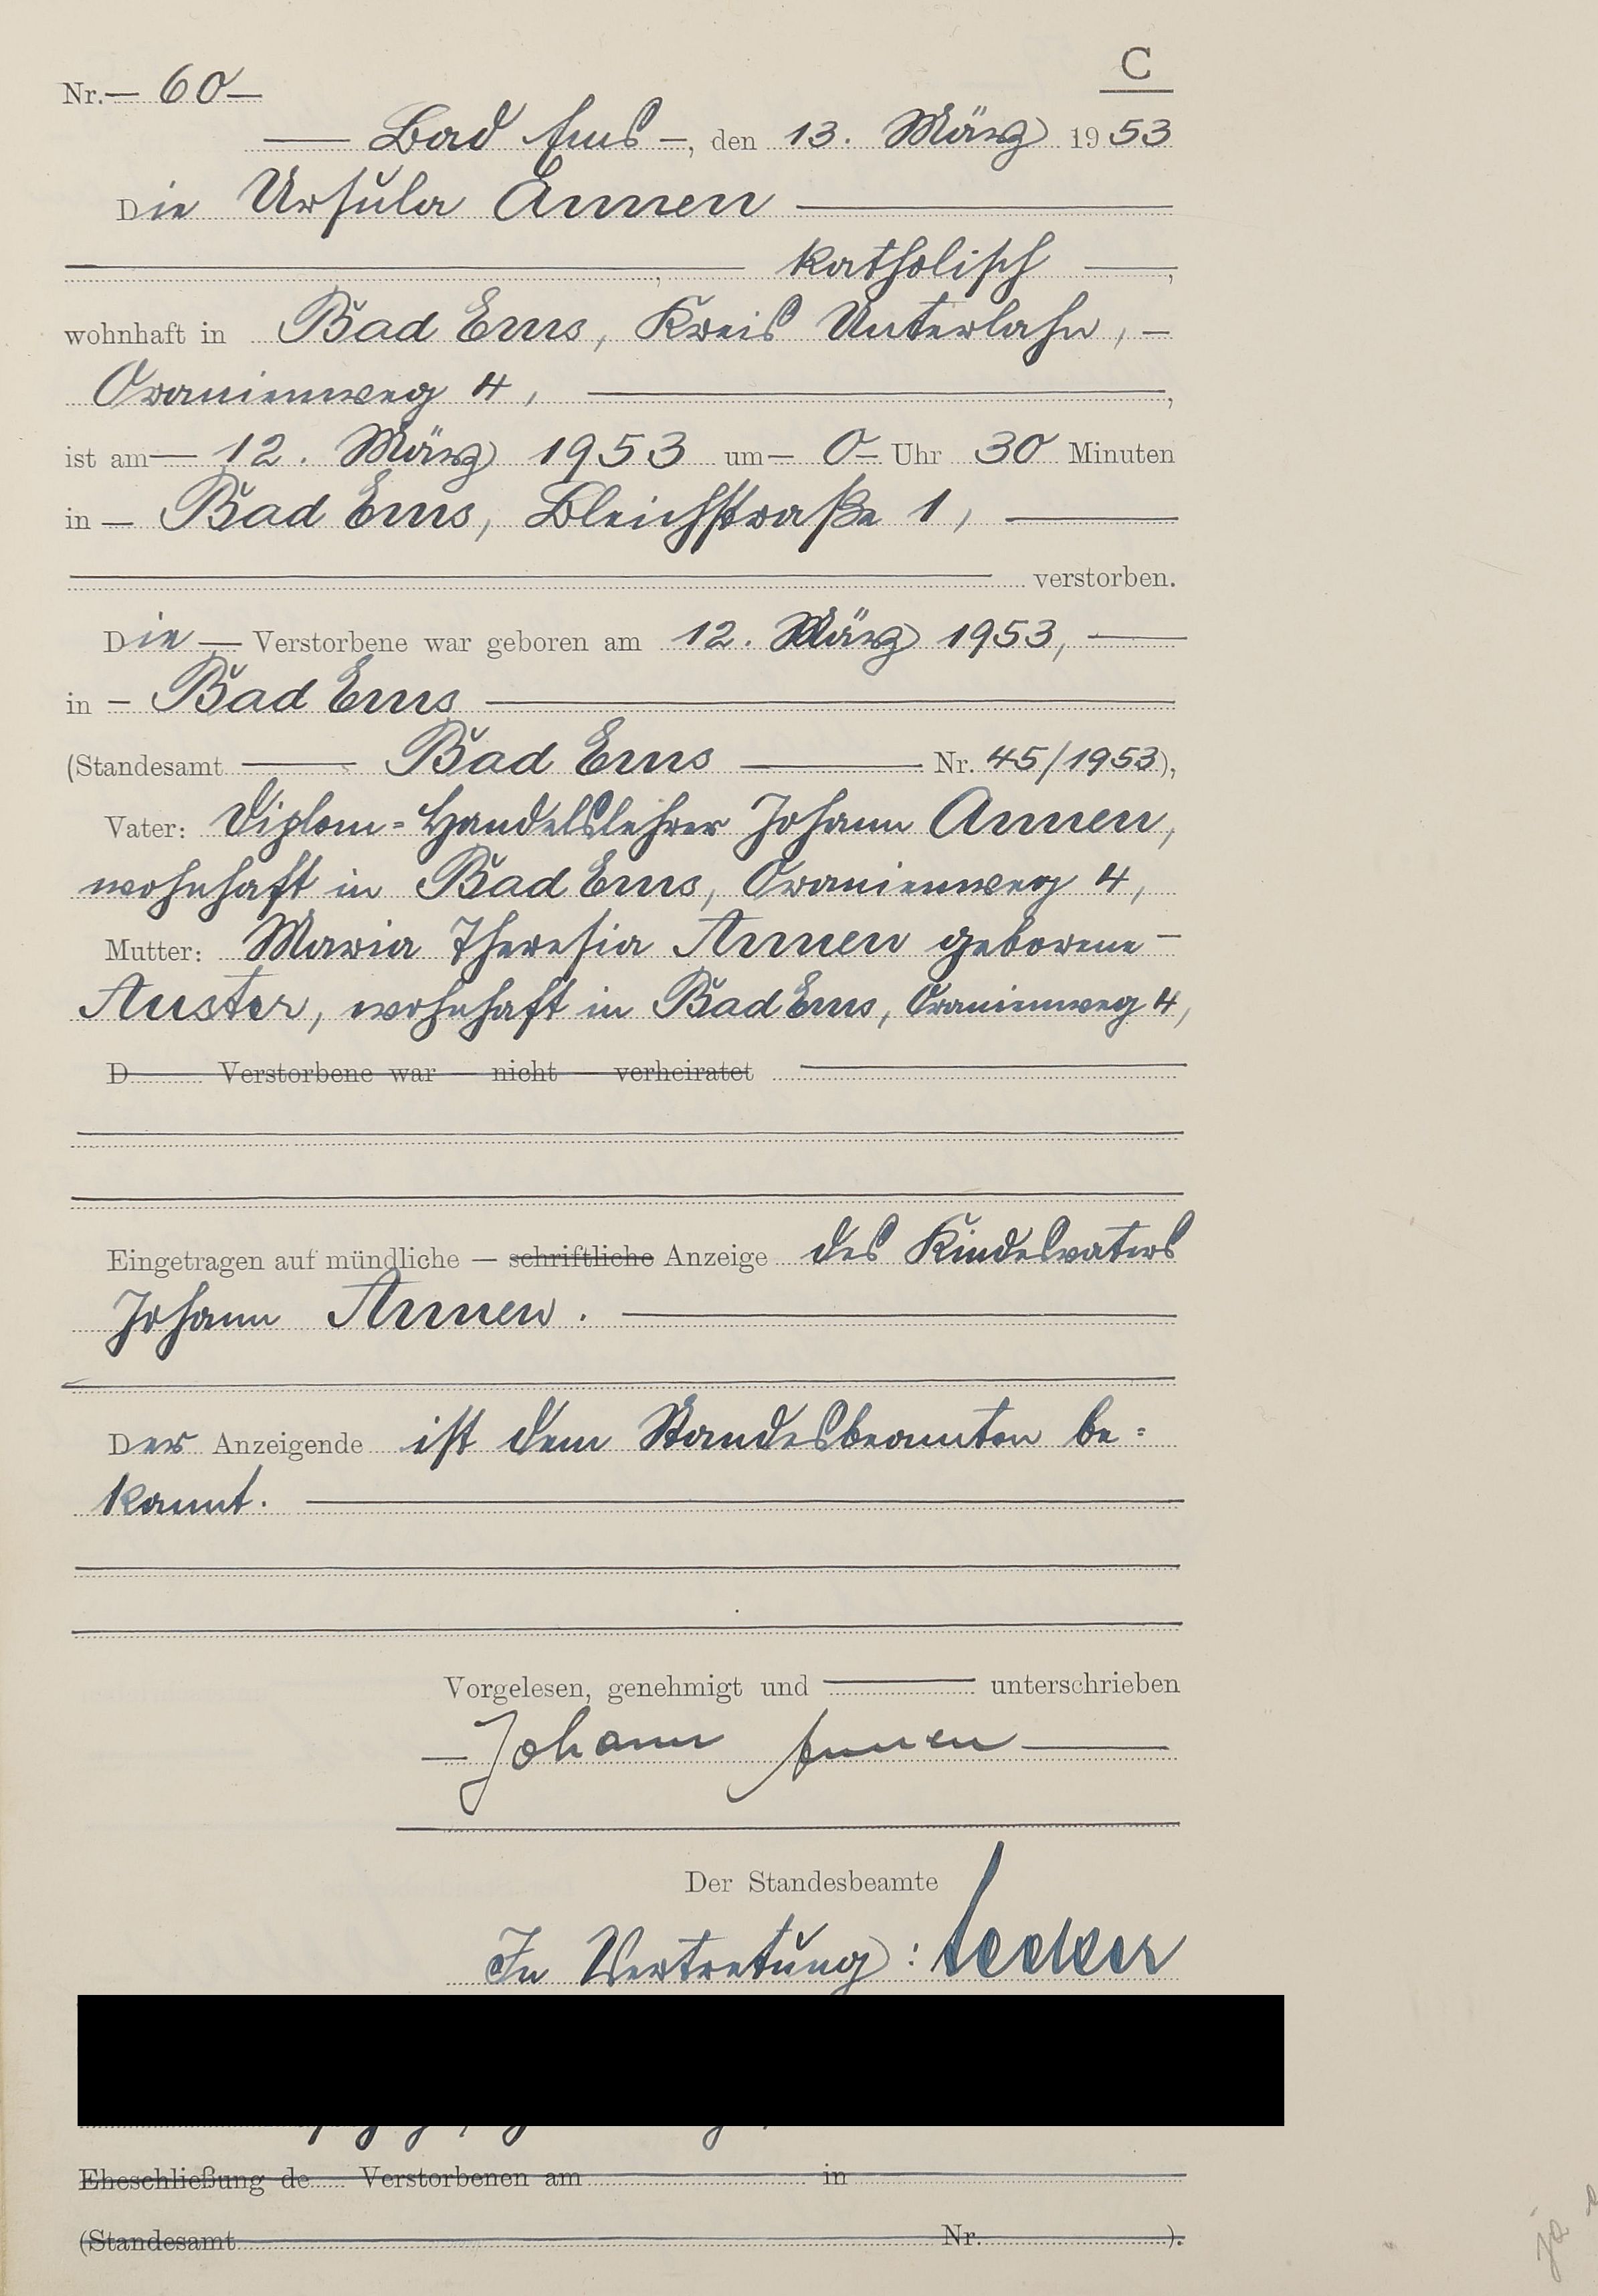 C
Nr. — 60 —
— Bad Ems —, den 13. März 1953
Die Ursula Annen —
—, — katholisch —,
wohnhaft in Bad Ems, Kreis Unterlahn, —
Oranienweg 4, —,
ist am — 12. März 1953 um — 0 — Uhr 30 Minuten
in — Bad Ems, Bleichstraße 1, —
— verstorben.
Die — Verstorbene war geboren am 12. März 1953, —
in — Bad Ems —
(Standesamt — Bad Ems — Nr. 45/1953),
Vater: Diplom=Handelslehrer Johann Annen,
wohnhaft in Bad Ems, Oranienweg 4,
Mutter: Maria Theresia Annen geborene —
Auster, wohnhaft in Bad Ems, Oranienweg 4,
D Verstorbene war — nicht — verheiratet —
Eingetragen auf mündliche — schriftliche Anzeige des Kindesvaters
Johann Annen. —
Der Anzeigende ist dem Standesbeamten be=
kannt. —
Vorgelesen, genehmigt und — unterschrieben
— Johann Annen —
Der Standesbeamte
In Vertretung:
Eheschließung de Verstorbenen am in
(Standesamt Nr. ).